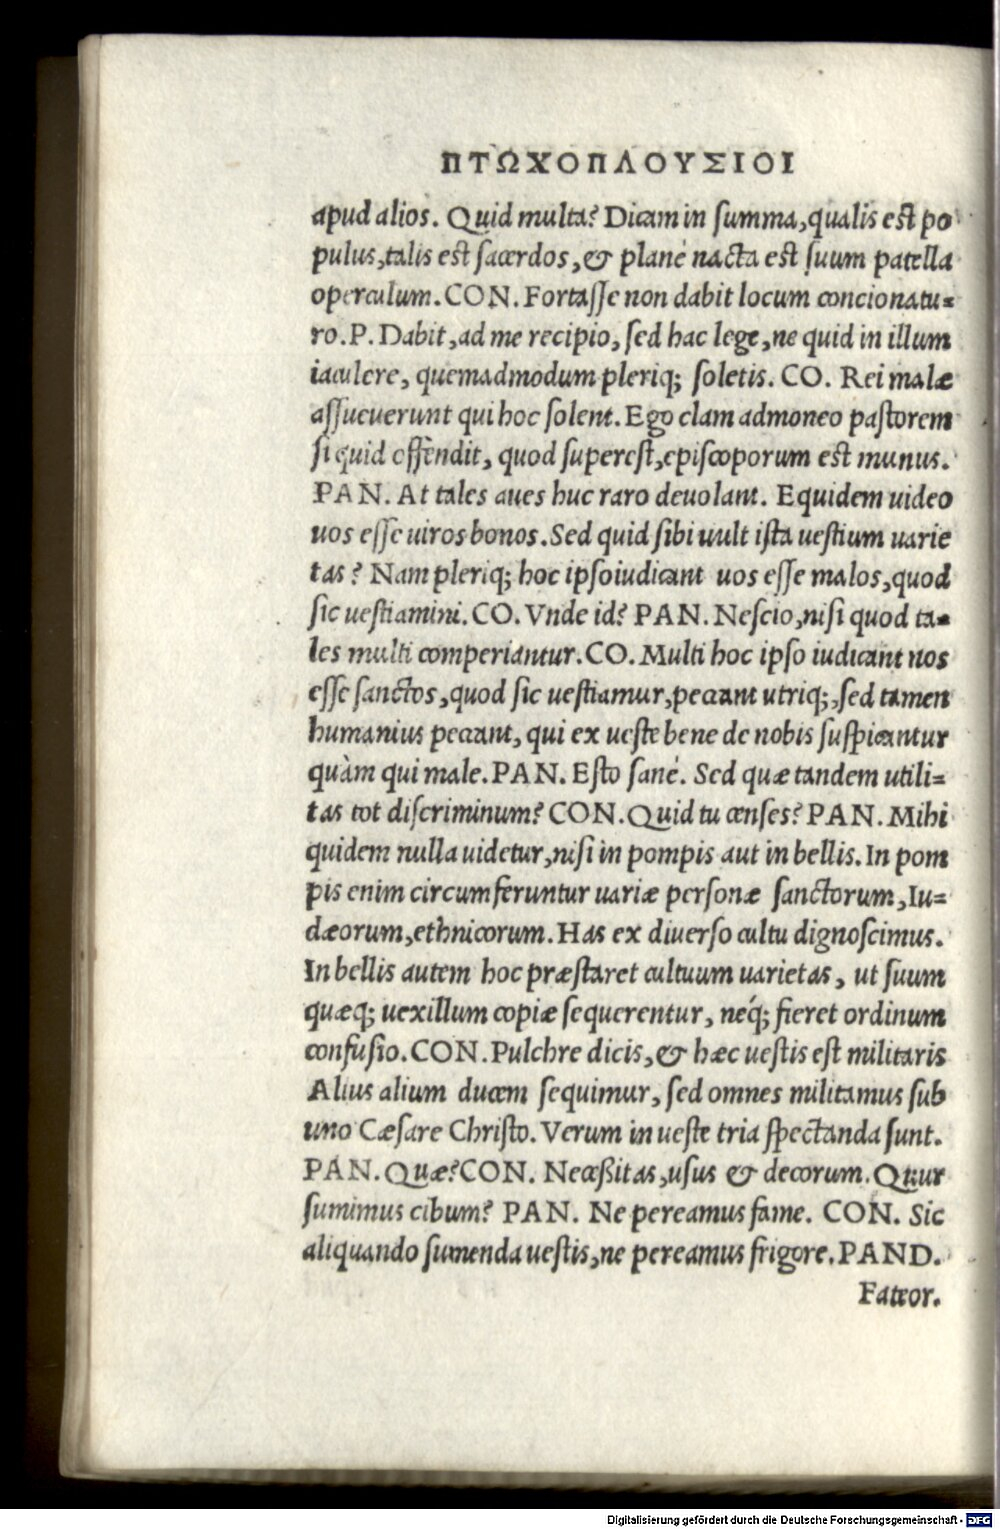 ΠΤΩΧΟΠΛΟΥΣΙΟΙ
apud alios. Quid multa? Dicam in ſumma, qualis est po
pulus, talis est ſacerdos, & planè nacta est ſuum patella
operculum. CON. Fortaſſe non dabit locum concionatu-
ro. P. Dabit, ad me recipio, ſed hac lege, ne quid in illum
iaculere, quemadmodum pleriq; ſoletis. CO. Rei malæ
aſſueuerunt qui hoc ſolent. Ego clam admoneo paſtorem
ſi quid offendit, quod ſupereſt, epiſcoporum est munus.
PAN. At tales aues huc raro deuolant. Equidem uideo
uos eſſe uiros bonos. Sed quid ſibi uult iſta ueſtium uarie
tas? Nam pleriq; hoc ipſo iudicant uos eſſe malos, quod
ſic ueſtiamini. CO. Vnde id? PAN. Neſcio, niſi quod ta-
les multi comperiantur. CO. Multi hoc ipſo iudicant nos
eſſe ſanctos, quod ſic ueſtiamur, peccant utriq;, ſed tamen
humanius peccant, qui ex ueſte bene de nobis ſuſpicantur
quàm qui male. PAN. Eſto ſanè. Sed quæ tandem utili-
tas tot diſcriminum? CON. Quid tu cenſes? PAN. Mihi
quidem nulla uidetur, niſi in pompis aut in bellis. In pom
pis enim circumferuntur uariæ perſonæ ſanctorum, Iu-
dæorum, ethnicorum. Has ex diuerſo cultu dignoſcimus.
In bellis autem hoc præſtaret cultuum uarietas, ut ſuum
quæq; uexillum copiæ ſequerentur, néq; fieret ordinum
confuſio. CON. Pulchre dicis, & hæc ueſtis eſt militaris
Alius alium ducem ſequimur, ſed omnes militamus ſub
uno Cæſare Chriſto. Verum in ueſte tria ſpectanda ſunt.
PAN. Quæ? CON. Neceßitas, uſus & decorum. Quur
ſumimus cibum? PAN. Ne pereamus fame. CON. Sic
aliquando ſumenda ueſtis, ne pereamus frigore. PAND.
Fateor.
Digitalisierung gefördert durch die Deutsche Forschungsgemeinschaft - DFG